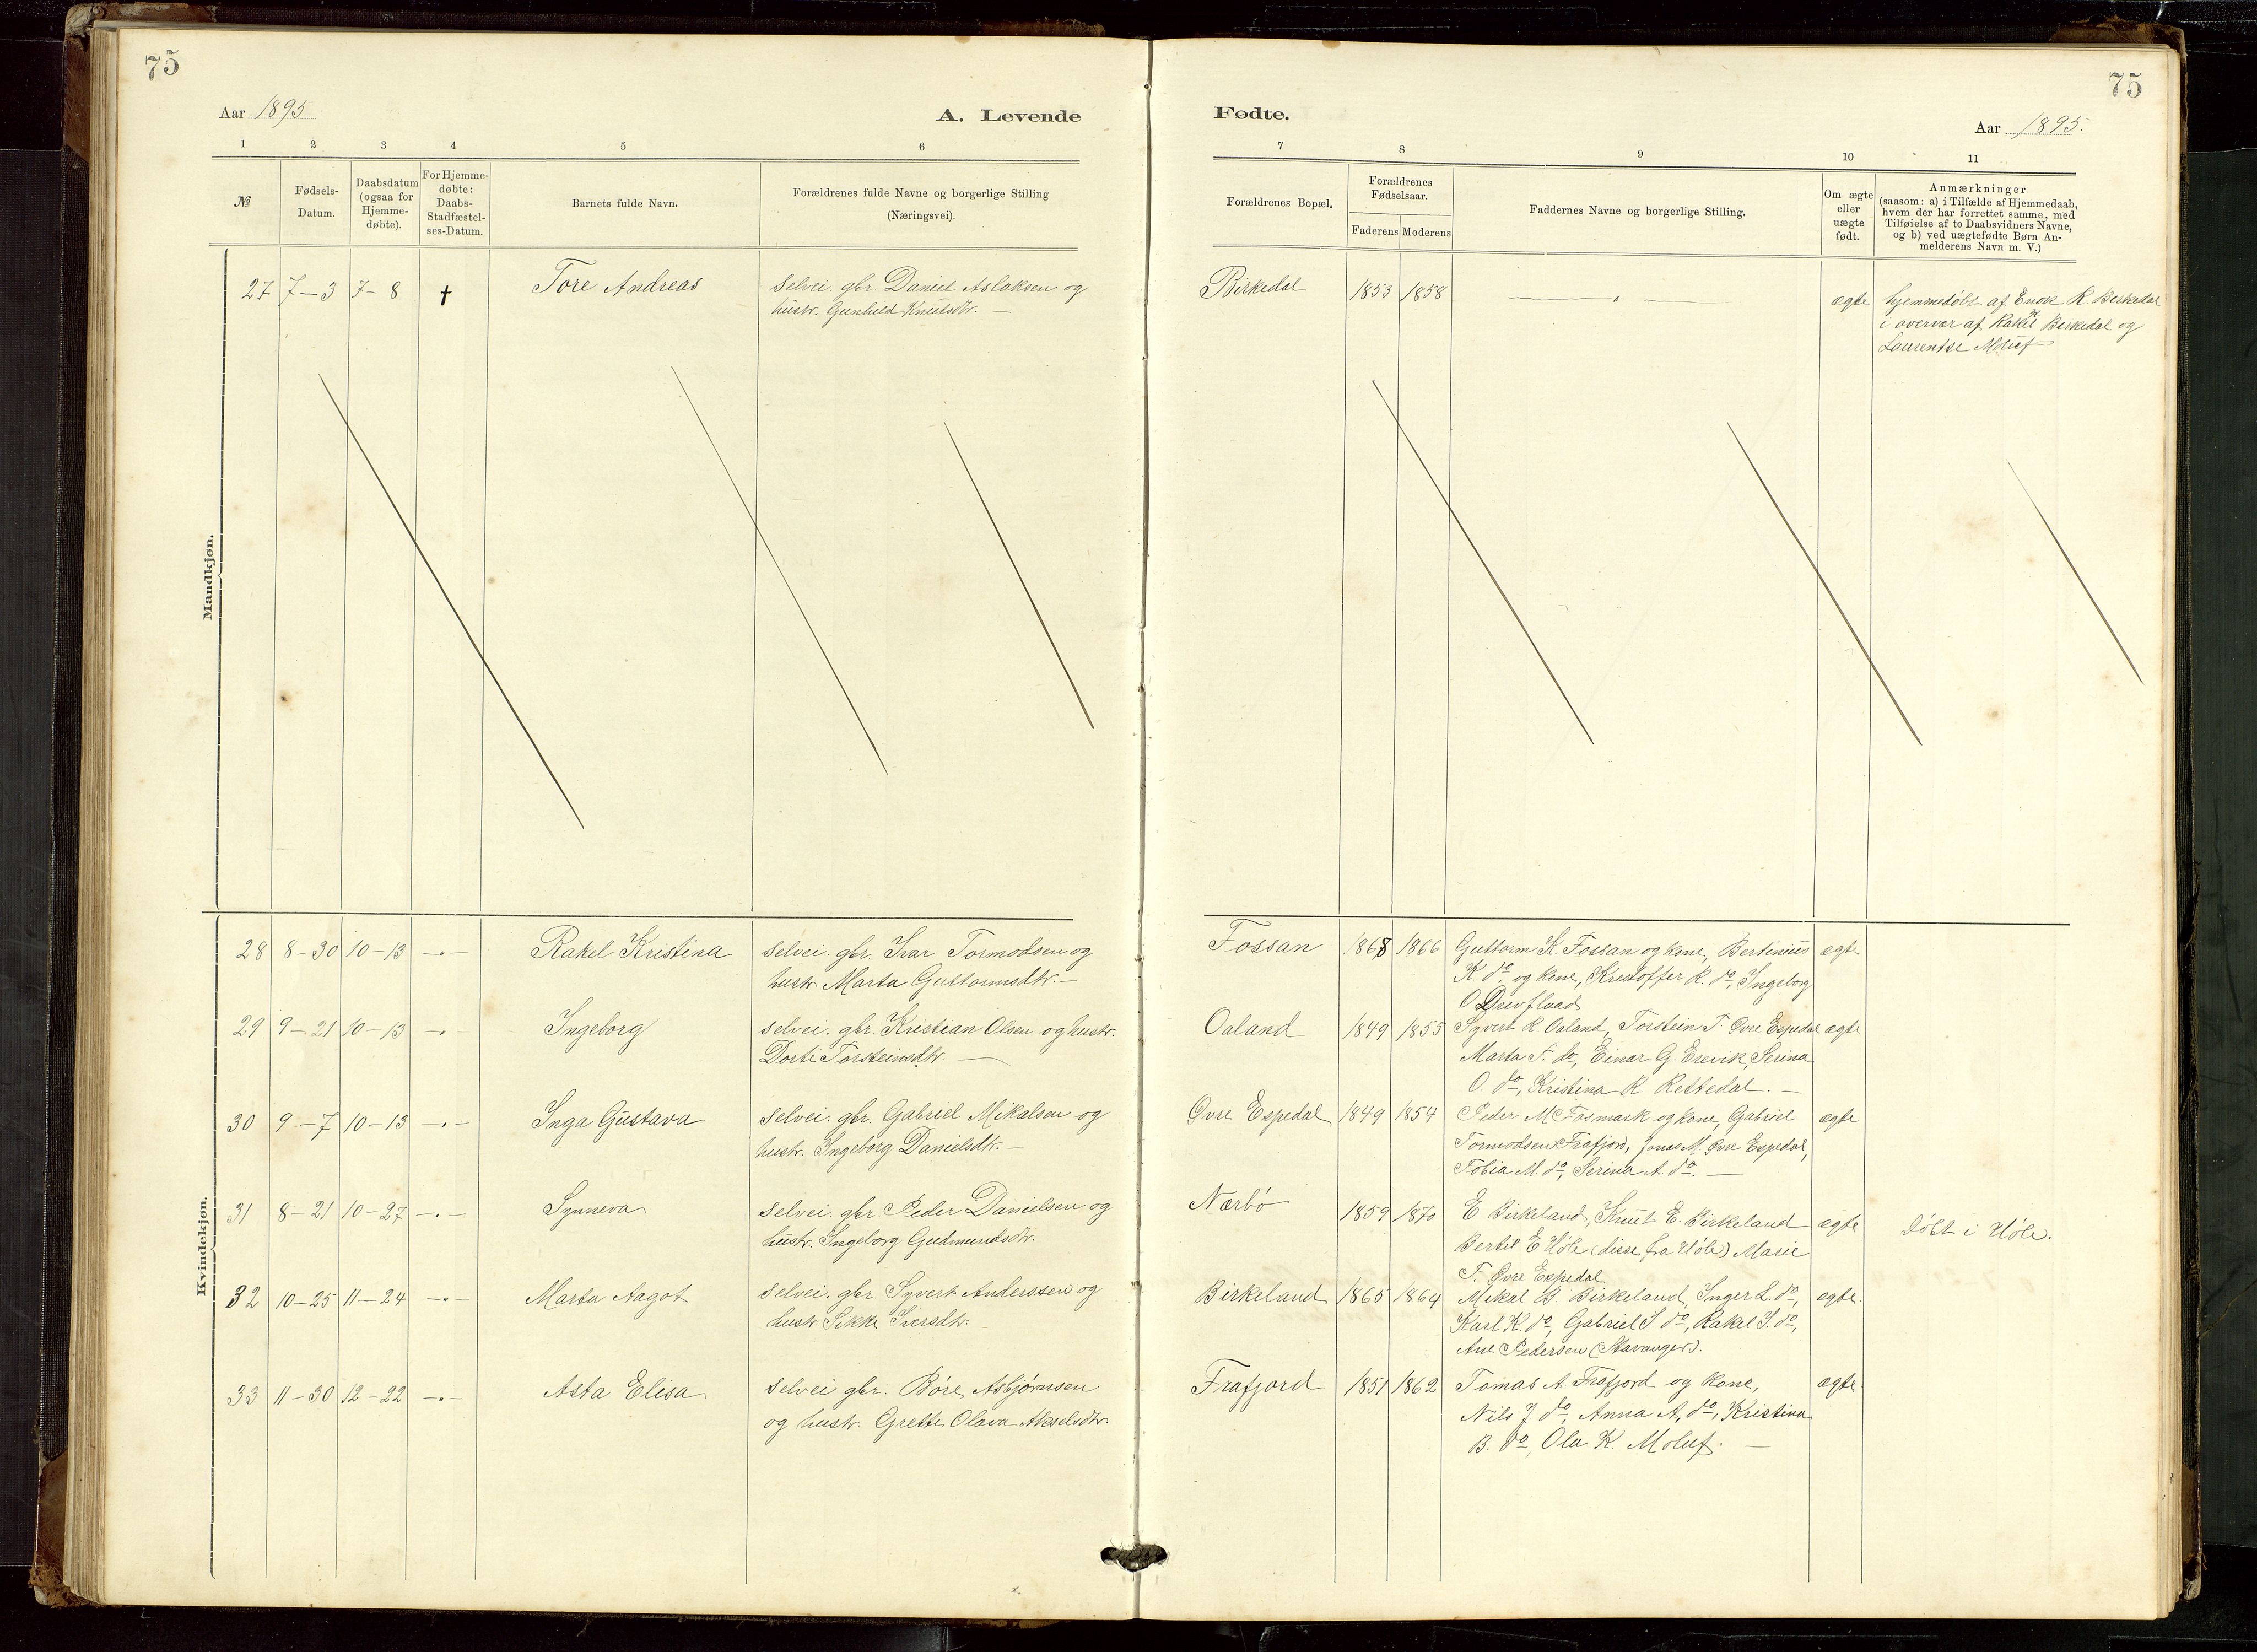 75
75
Aar 1895
A. Levende
Fødte.
Aar 1895.
1 2 3 4 5 6
7 8 9 10 11
№
Fødsels-
Datum.
Daabsdatum
(ogsaa for
Hjemme-
døbte).
For Hjemme-
døbte:
Daabs-
Stadfæstel-
ses-Datum.
Barnets fulde Navn.
Forældrenes fulde Navne og borgerlige Stilling
(Næringsvei).
Forældrenes Bopæl.
Forældrenes
Fødselsaar.
Faderens Moderens
Faddernes Navne og borgerlige Stilling.
Om ægte
eller
uægte
født.
Anmærkninger
(saasom: a) i Tilfælde af Hjemmedaab,
hvem der har forrettet samme, med
Tilføielse af to Daabsvidners Navne,
og b) ved uægtefødte Børn An-
melderens Navn m. V.)
Mandkjøn.
27 7-3 7-8 † Tore Andreas selvei. gbr. Daniel Aslaksen og
hustr. Gunhild Knutsdtr. —
Birkedal 1853 1858 — " — ægte hjemmedöbt af Enok K. Birkedal
i overvær af Rakel K. Birkedal og
Laurentse Moluf
Kvindekjøn.
28 8-30 10-13 -"- Rakel Kristina selvei. gbr. Ivar Tormodsen og
hustr. Marta Guttormsdtr. —
Fossan 1868 1866 Guttorm K. Fossan og kone, Bertinius ægte
K. do og kone, Kristoffer R. do, Ingeborg
O
29 9-21 10-13 -"- Ingeborg selvei. gbr. Kristian Olsen og hustr.
Dorte Torsteinsdtr. —
Oaland 1849 1855 Syvert R Oaland, Torstein T. Øvre Espedal ægte
Marta T. do, Einar G. Erevik, Serina
O. do, Kristina R. Rettedal. —
30 9-7 10-13 -"- Inga Gustava selvei. gbr. Gabriel Mikalsen og
hustr. Ingeborg Danielsdtr. —
Øvre Espedal 1849 1854 Peder M Fosmark og kone, Gabriel ægte
Tormodsen Frafjord, Jonas M. Øvre Espedal,
Tobia M. do, Serina A. do. —
31 8-21 10-27 -"- Synneva selvei. gbr. Peder Danielsen og
hustr. Ingeborg Gudmundsdtr.
Nærbö 1859 1870 E Birkeland, Knut E. Birkeland ægte döbt i Höle.
Bertil E Höle (disse fra Höle) Marie
T. Øvre Espedal
32 10-25 11-24 -"- Marta Aagot selvei. gbr. Syvert Anderssen og
hustr. Sikke Iversdtr. —
Birkeland 1865 1864 Mikal B. Birkeland, Inger L. do, ægte.
Karl K. do, Gabriel S. do, Rakel S. do,
Ane Pedersen (Stavanger).
33 11-30 12-22 -"- Asta Elisa selvei gbr. Böre Asbjørnsen
og hustr. Grette Olava Akselsdtr.
Frafjord 1851 1862 Tomas A. Frafjord og kone, ægte.
Nils J. do, Anna A. do, Kristina
B. do, Ola K. Moluf. —